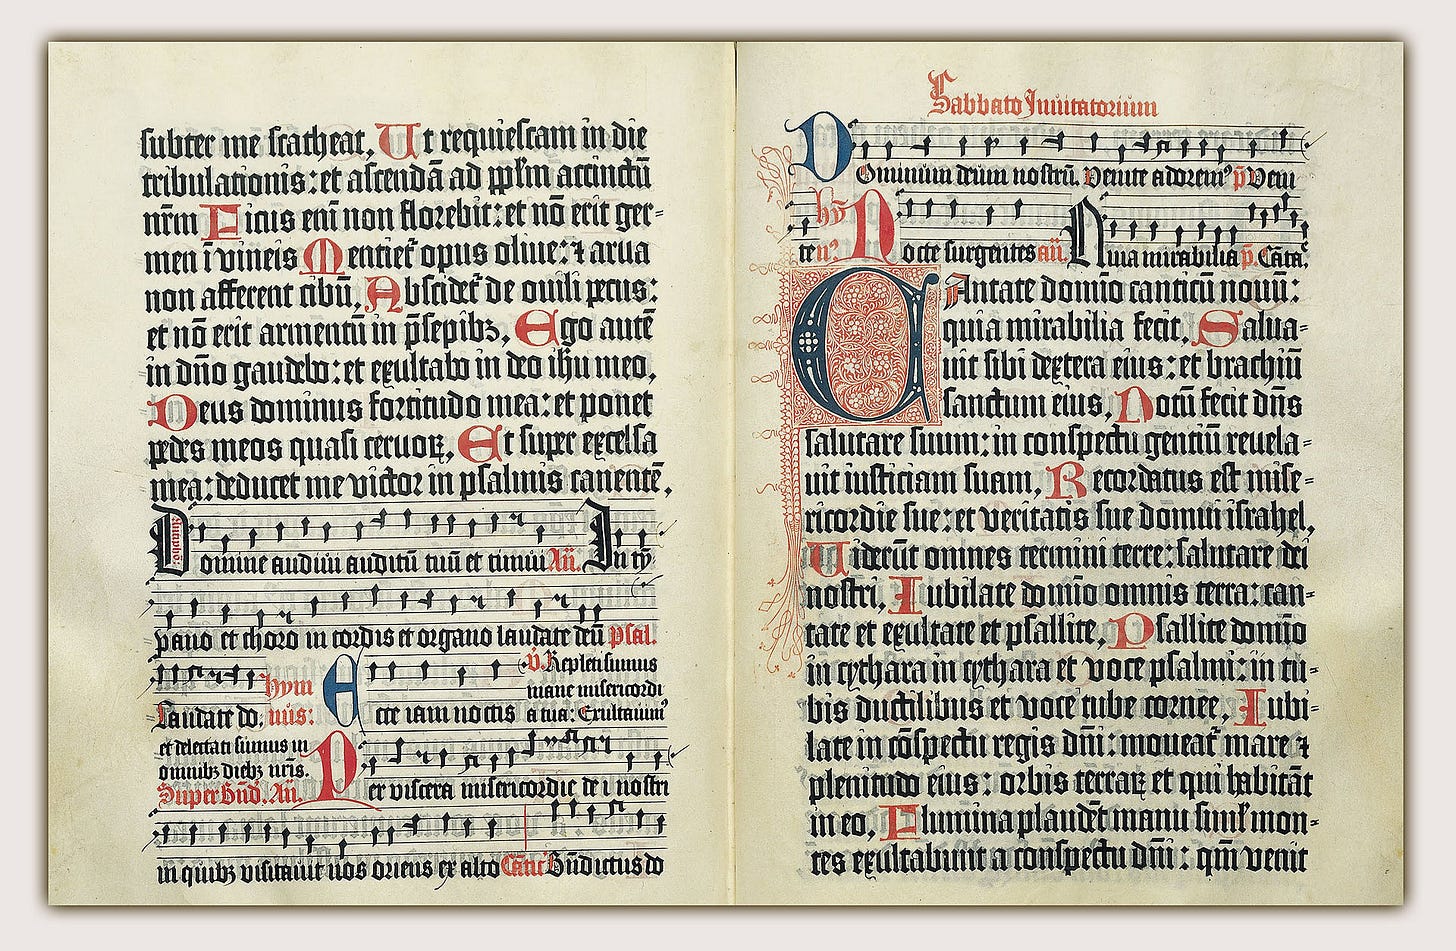 subter me scatheat, Ut requiescam in die
tribulationis: et ascendā ad pplm accinctū
nrm Ficus eni non florebit: et nō erit ger-
men ī vineis Mentiet opus olive: ⁊ arua
non afferent cibū, Abscidet de ouili pecus:
et nō erit armentū in p̄sepibꝫ, Ego autē
in dño gaudebo: et exultabo in deo ihu meo,
Deus dominus fortitudo mea: et ponet
pedes meos quasi ceruoꝝ, Et super excelsa
mea: deducet me victor in psalmis canentē,
Domine audiui auditū tuū et timui Añ. In tỹ
pano et choro in cordis et organo laudate deū psal.
ṽ. Repleti sumus
hym
mane misericordi
Laudate do, nus: Ecce iam noctis
a tua: Exultauim⁹
et delectati sumus in
omnibꝫ diebꝫ nr̄is.
Super Bñd. Añ. Per viscera misericordie dei nostri
in quibꝫ visitauit nos oriens ex alto Cātic Bñdictus do
Sabbato Inuitatorium
Dominum deum nostrū. Venite adorem⁹ p̄ Veni
hỹ
te n? Nocte surgentes añ. Quia mirabilia p̄. Cāta,
CAntate domīo canticū nouū:
quia mirabilia fecit, Salua-
uit sibi dextera eius: et brachiū
sanctum eius, Notū fecit dñs
salutare suum: in conspectu gentiū reuela-
uit iusticiam suam, Recordatus est mise-
ricordie sue: et veritatis sue domui israhel,
Uiderūt omnes termini terre: salutare dei
nostri, Iubilate domīo omnis terra: can-
tate et exultate et psallite, Psallite domīo
in cythara in cythara et voce psalmi: in tu-
bis ductilibus et voce tube cornee, Iubi-
late in cōspectu regis dñi: moueat mare ⁊
plenitudo eius: orbis terraꝝ et qui habitāt
in eo, Flumina plaudēt manu simł mon-
tes exultabunt a conspectu dñi: qm̄ venit